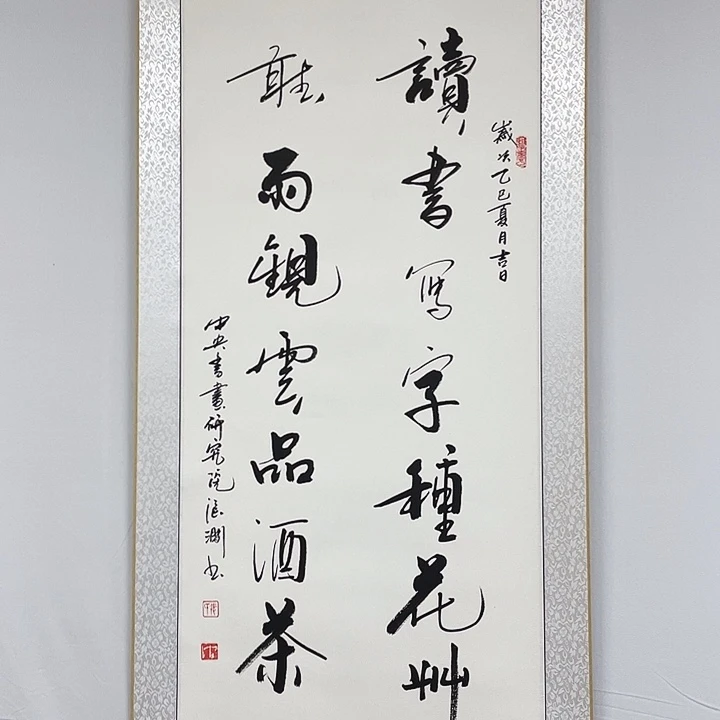 歲次乙巳夏月吉日
讀書寫字種花艸
聽雨觀雲品酒茶
中央書畫研究院